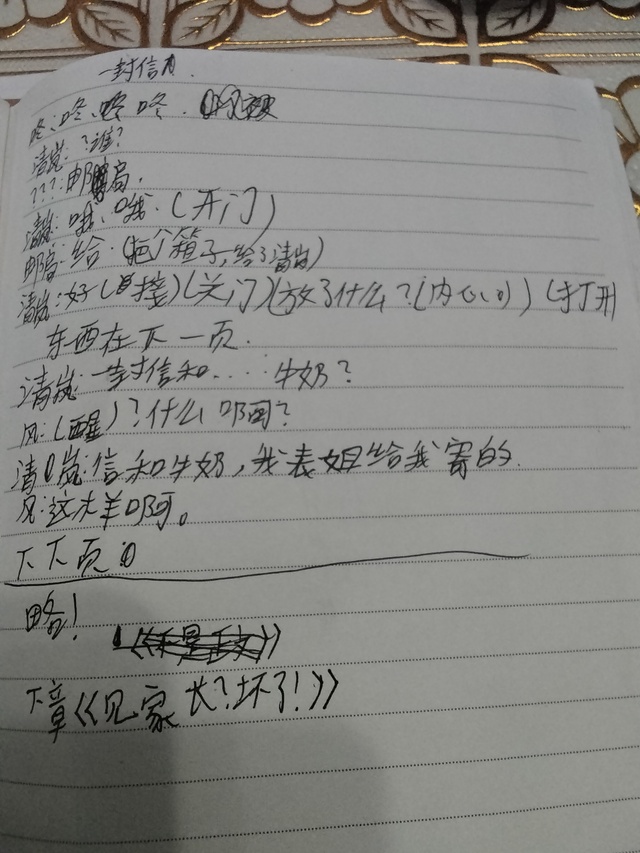 一封信
咚、咚、咚 咚.
清岚:?谁?
???:邮局.
清岚:哦、哦.(开门)
邮局:给.(把个箱子,给了清岚)
清岚:好(直接)(关门)(放了什么?(内心))(打开
东西在下一页.
清岚:一封信和....牛奶?
风:(醒)?什么啊?
清岚:信和牛奶,我表姐给我寄的.
风:这样啊。
下下页
略!
下章《见家长?坏了!》